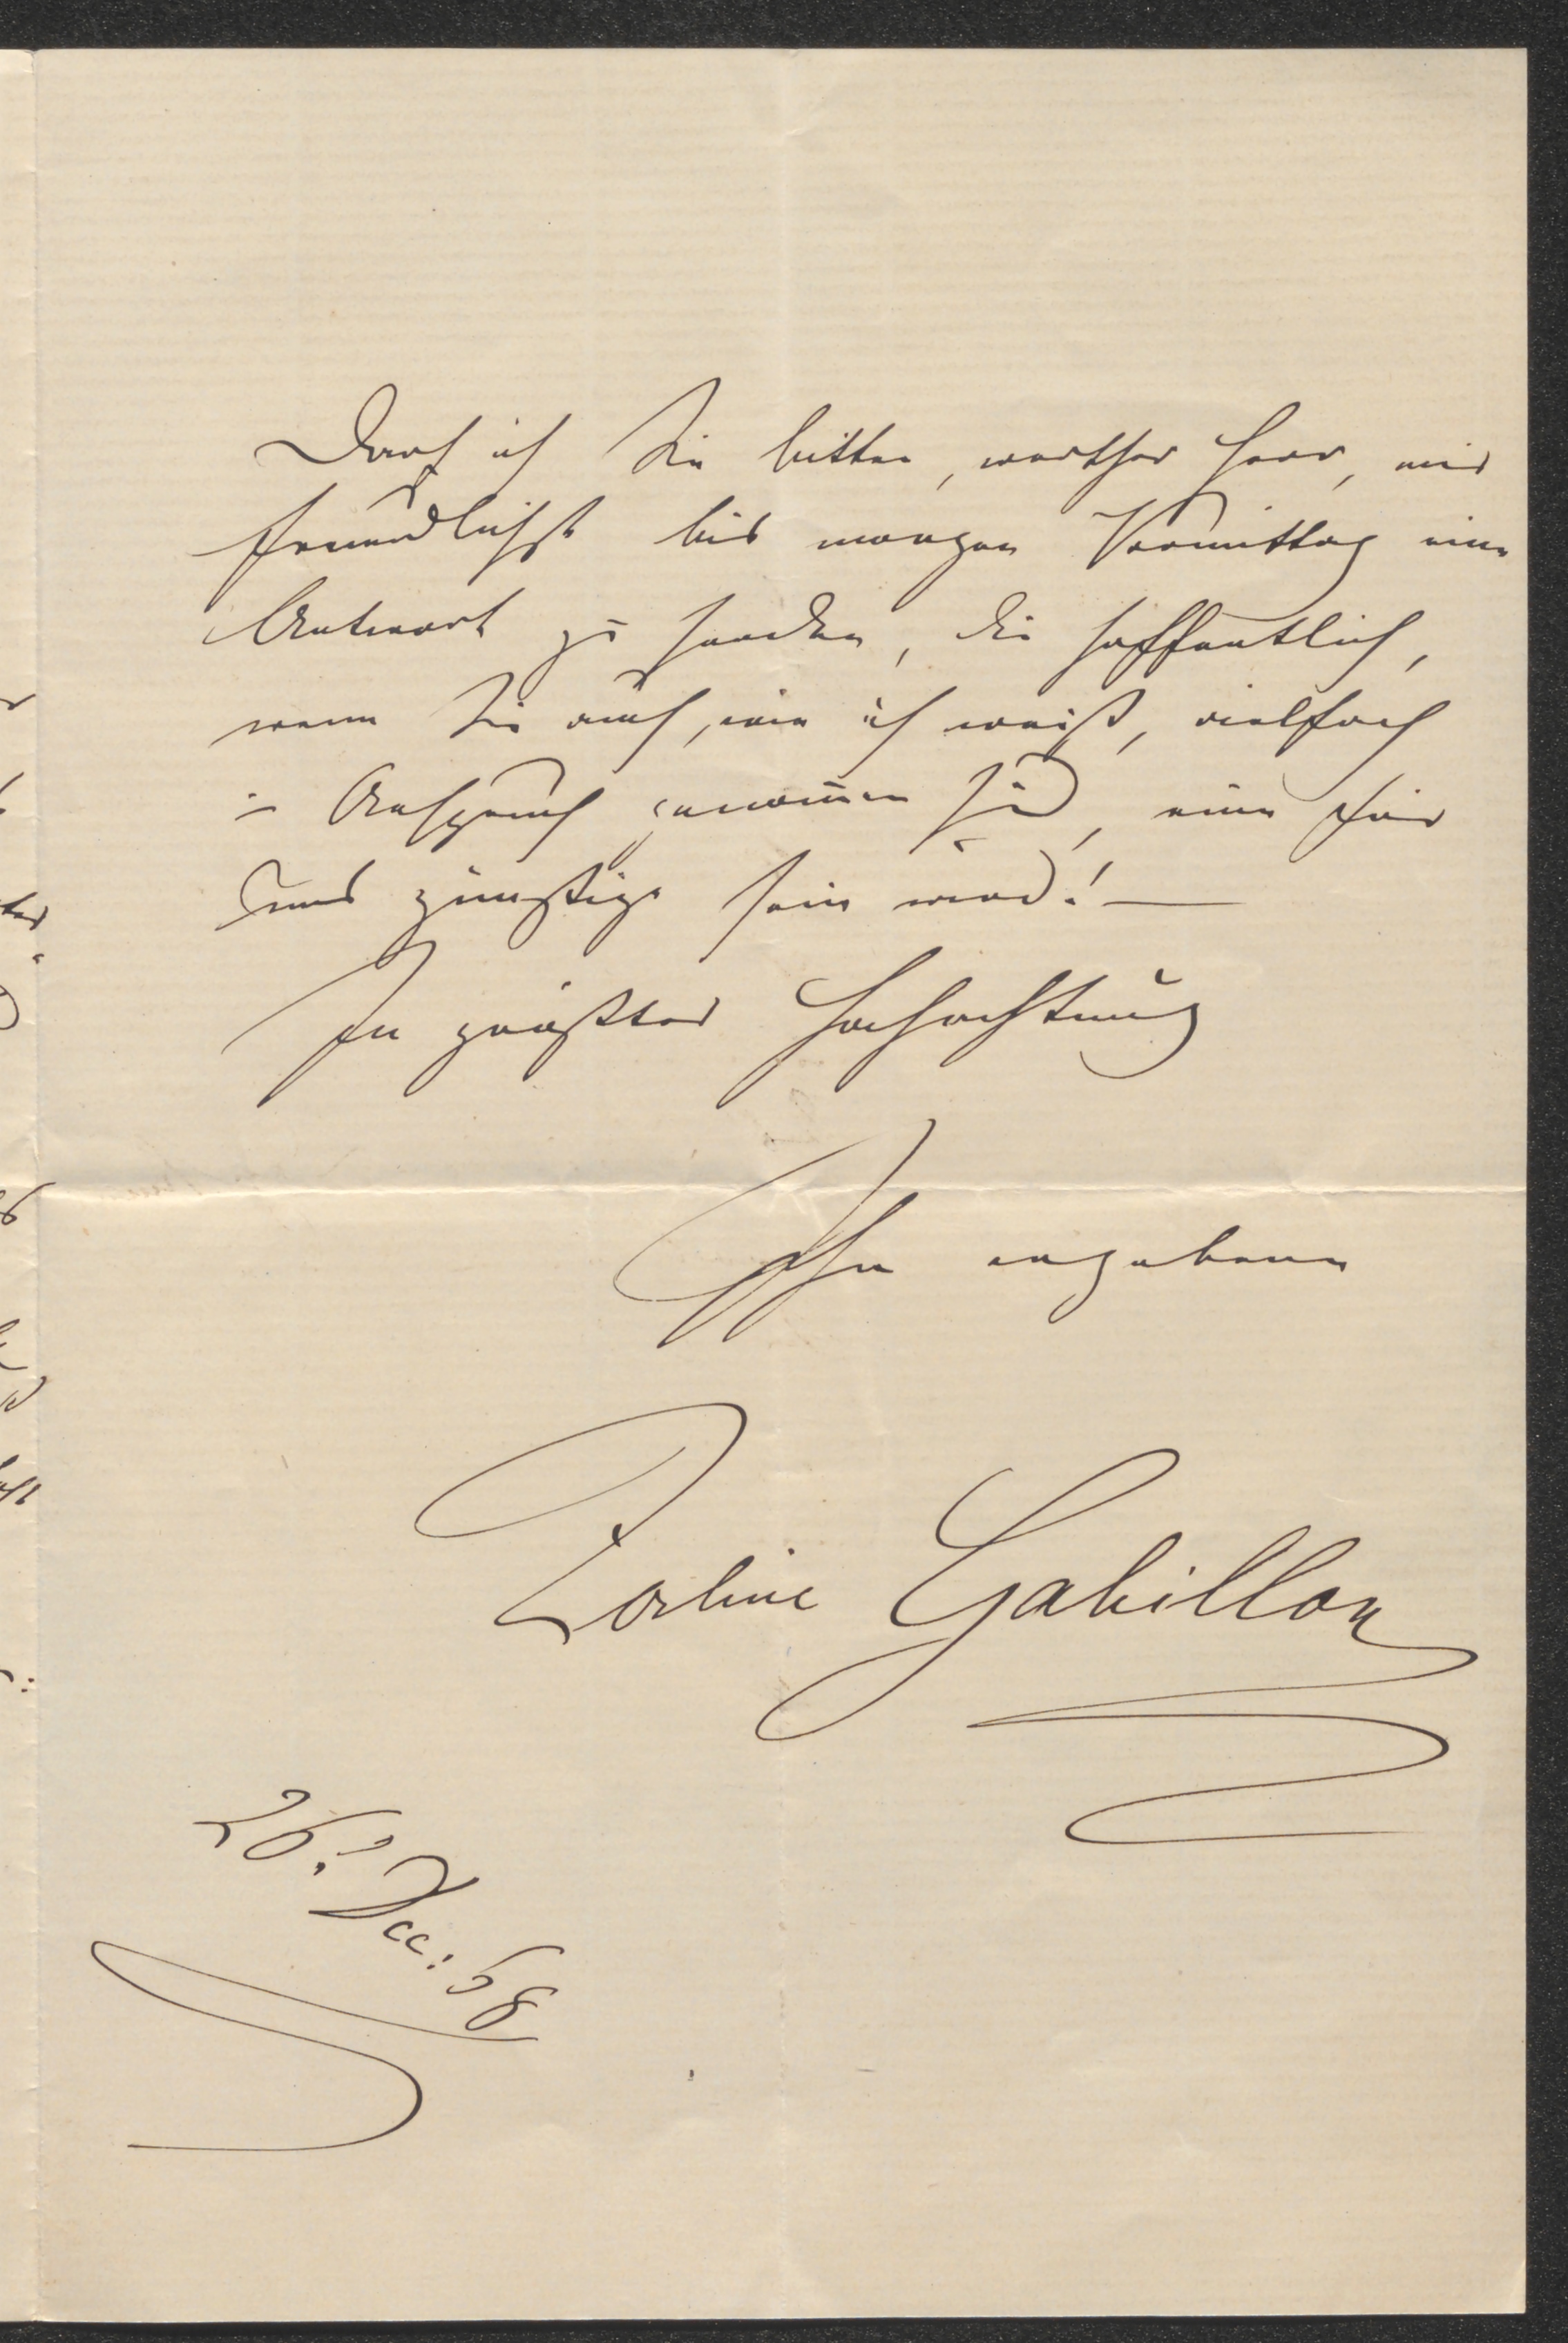 Darf ich Sie bitten, werther Herr, mir
freundlichst bis morgen Vormittag eine
Antwort zu senden, die hoffentlich,
wenn Sie auch, wie ich weiß, vielfach
in Anspruch genom̄en sind, eine für
uns günstige sein wird! —
In größter Hochachtung
Ihre ergebene
Zerline Gabillon
26t Dec: 58